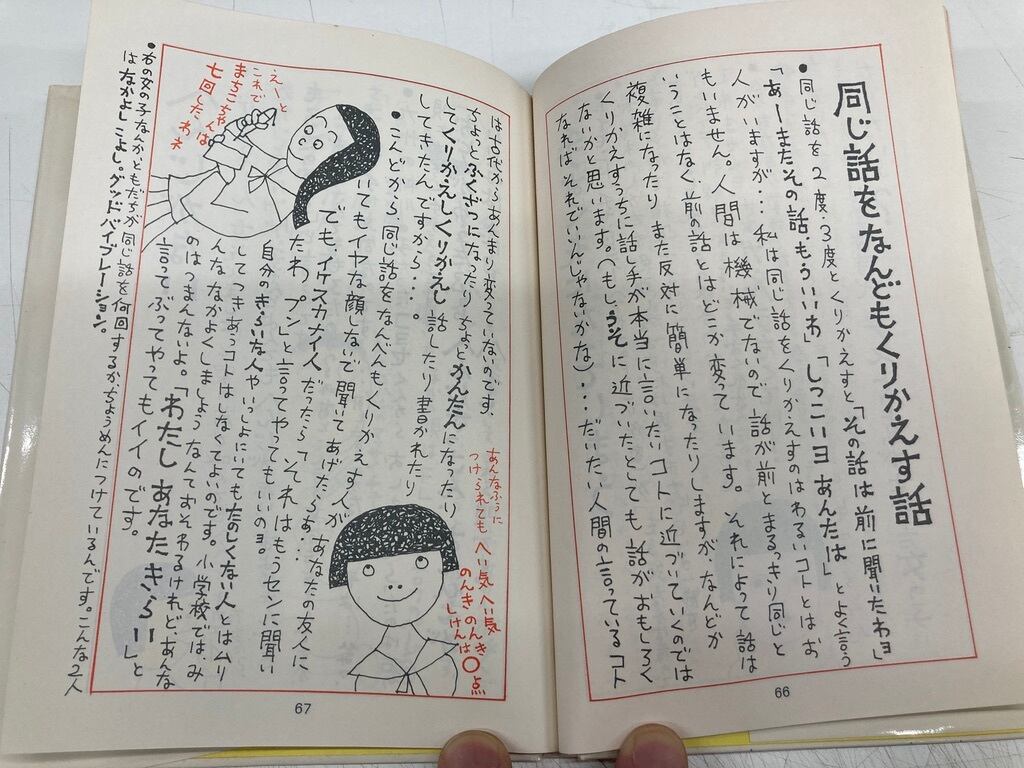 同じ話をなんどもくりかえす話
●同じ話を2度・3度とくりかえすと「その話は前に聞いたわョ」
「あーまたその話もういいわ」「しつこいヨあんたは」とよく言う
人がいますが・・・私は同じ話をくりかえすのはわるいコトとはお
もいません。人間は機械でないので話が前とまるっきり同じと
いうことはなく、前の話とはどこか変っています。それによって話は
複雑になったり また反対に簡単になったりしますが、なんどか
くりかえすうちに話し手が本当に言いたいコトに近づいていくのでは
ないかと思います。(もしうそに近づいたとしても、話がおもしろく
なればそれでいいんじゃないかな)・・・だいたい人間の言っているコト
66
は古代からあんまり変っていないのです、
ちょっとふくざつになったりちょっとかんたんになったり
してくりかえしくりかえし話したり書かれたり
してきたんですから・・・。
●こんどから、同じ話をなんべんもくりかえす人が
いてもイヤな顔しないで聞いてあげたらぁ・・・
でも、イケスカナイ人だったら「それはもうセンに聞い
たわ プン」と言ってやってもいいのョ。
あなたの友人に
自分のきらいな人やいっしょにいてもたのしくない人とはムリ
してつきあうコトはしなくてよいのです。小学校では、み
んななかよくしましょうなんておそわるけれど、あんな
のはつまんないよ。「わたし あなた きらい」と
言ってぶってやってもイイのです。
えーと
これで
まちこちゃんは
七回したわネ
あんなふうに
つけられても
へい気へい気
のんきのんき
しけんは〇点
●右の女の子なんかともだちが同じ話を何回するかちょうめんにつけているんです。こんな2人
はなかよしこよし。グッドバイブレーション。
67